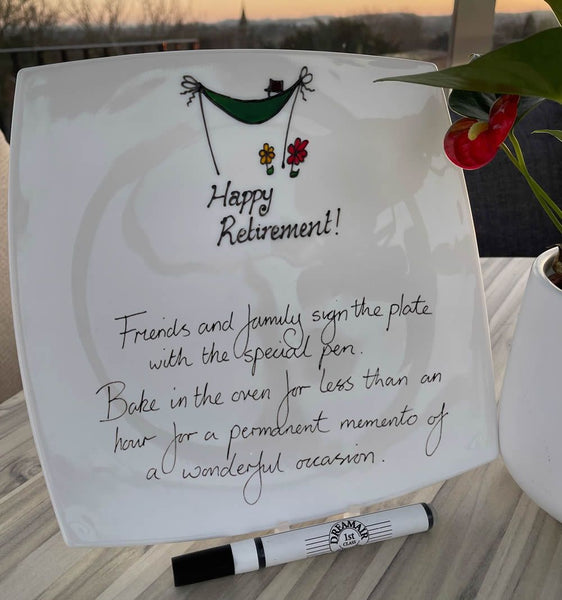 Happy
Retirement!
Friends and family sign the plate
with the special pen.
Bake in the oven for less than an
hour for a permanent memento of
a wonderful occasion.
DREAMAIR
1st
CLASS